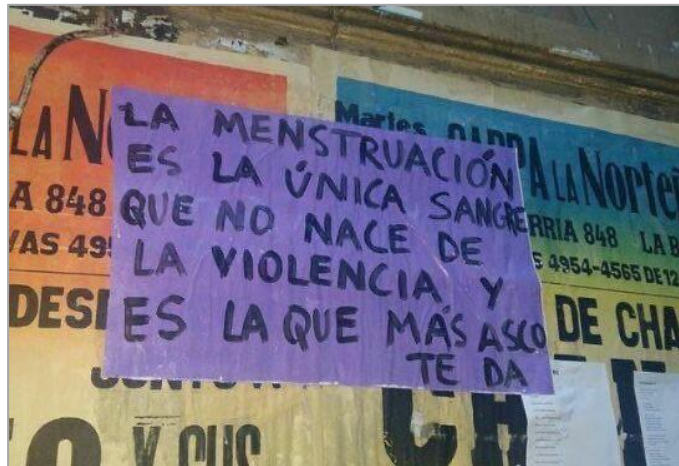 LA MENSTRUACIÓN
ES LA ÚNICA SANGRE
QUE NO NACE DE
LA VIOLENCIA Y
ES LA QUE MÁS ASCO
TE DA
LA N
A 848
VAS 49
DES
Y SUS
Martes
A LA Norte
RRIA 848 LA B
4954-4565 DE 12
DE CHA